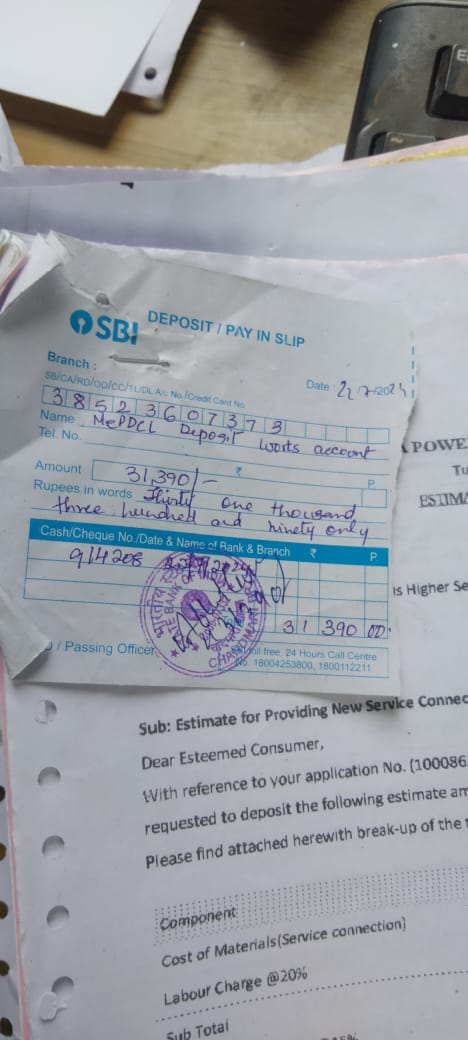 SBI DEPOSIT / PAY IN SLIP
Branch :
Date 22/7/2024
SB/CA/RD/OD/CC/TL/DL A/c No./Credit Card No.
38523607373
Name MePDCL Deposit works account
Tel. No.
Amount ₹ P.
31,390/-
Rupees in words Thirty one thousand
three hundred and ninety only
Cash/Cheque No./Date & Name of Bank & Branch ₹ P.
914208
31 390 00
/ Passing Officer
toll free, 24 Hours Call Centre
No. 18004253800, 1800112211
POWE
Tu
ESTIMA
is Higher Se
Sub: Estimate for Providing New Service Connec
Dear Esteemed Consumer,
With reference to your application No. (100086
requested to deposit the following estimate am
Please find attached herewith break-up of the
Component
Cost of Materials(Service connection)
Labour Charge @20%
Sub Total